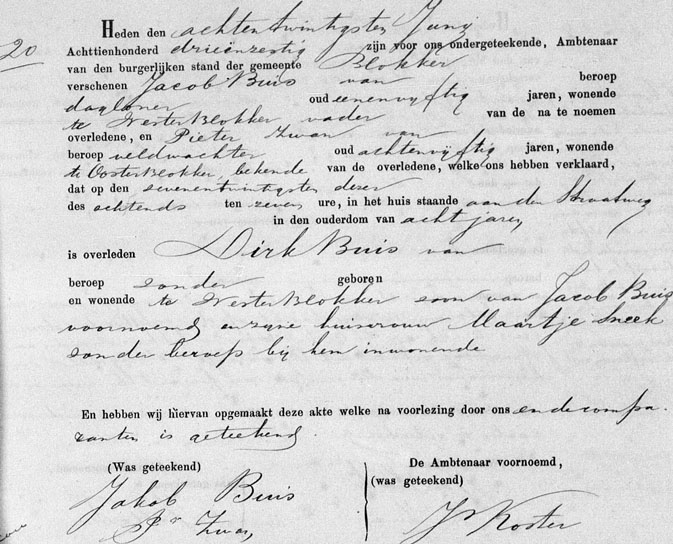 20
Heden den achtentwintigsten Junij
Achttienhonderd drieënzestig zijn voor ons ondergeteekende, Ambtenaar
van den burgerlijken stand der gemeente Blokker
verschenen Jacob Buis van beroep
daglooner oud eenenvijftig jaren, wonende
te Westerblokker vader van de na te noemen
overledene, en Pieter Zwan van
beroep veldwachter oud achtenvijftig jaren, wonende
te Oosterblokker, bekende van de overledene, welke ons hebben verklaard,
dat op den zevenentwintigsten dezer
des achtends ten zeven ure, in het huis staande aan den Straatweg
in den ouderdom van acht jaren
is overleden Dirk Buis van
beroep zonder geboren
en wonende te Westerblokker zoon van Jacob Buis
voornoemd en zijne huisvrouw Maartje Sneek
zonder beroep bij hem inwonende
En hebben wij hiervan opgemaakt deze akte welke na voorlezing door ons en de compa-
ranten is geteekend.
(Was geteekend) De Ambtenaar voornoemd,
(was geteekend)
Jakob Buis
Pr Zwan
Koster